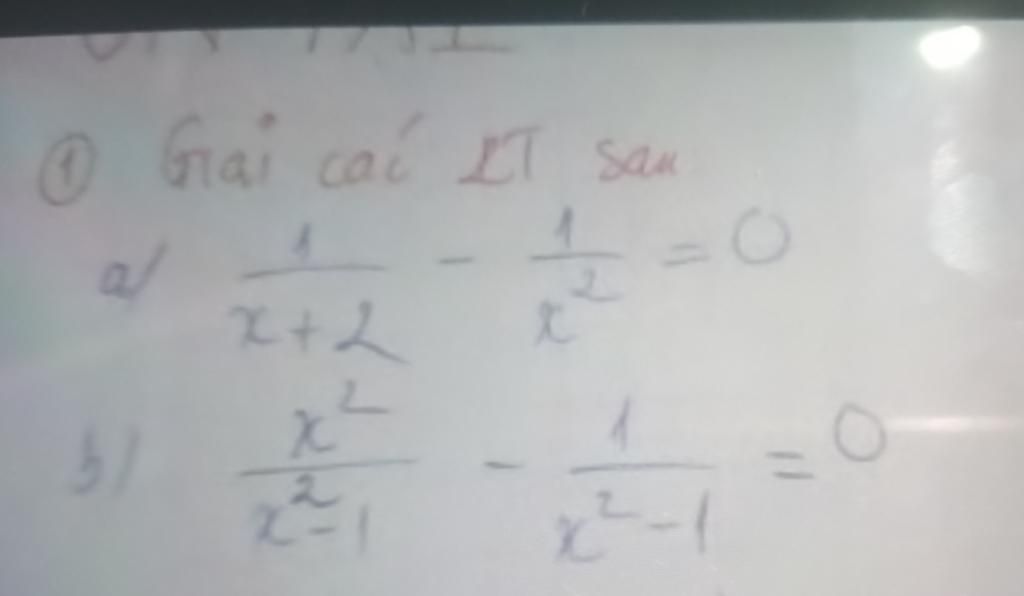 ① Giải các PT sau
a/ \frac{1}{x+2} - \frac{1}{x^2} = 0
b/ \frac{x^2}{x^2-1} - \frac{1}{x^2-1} = 0